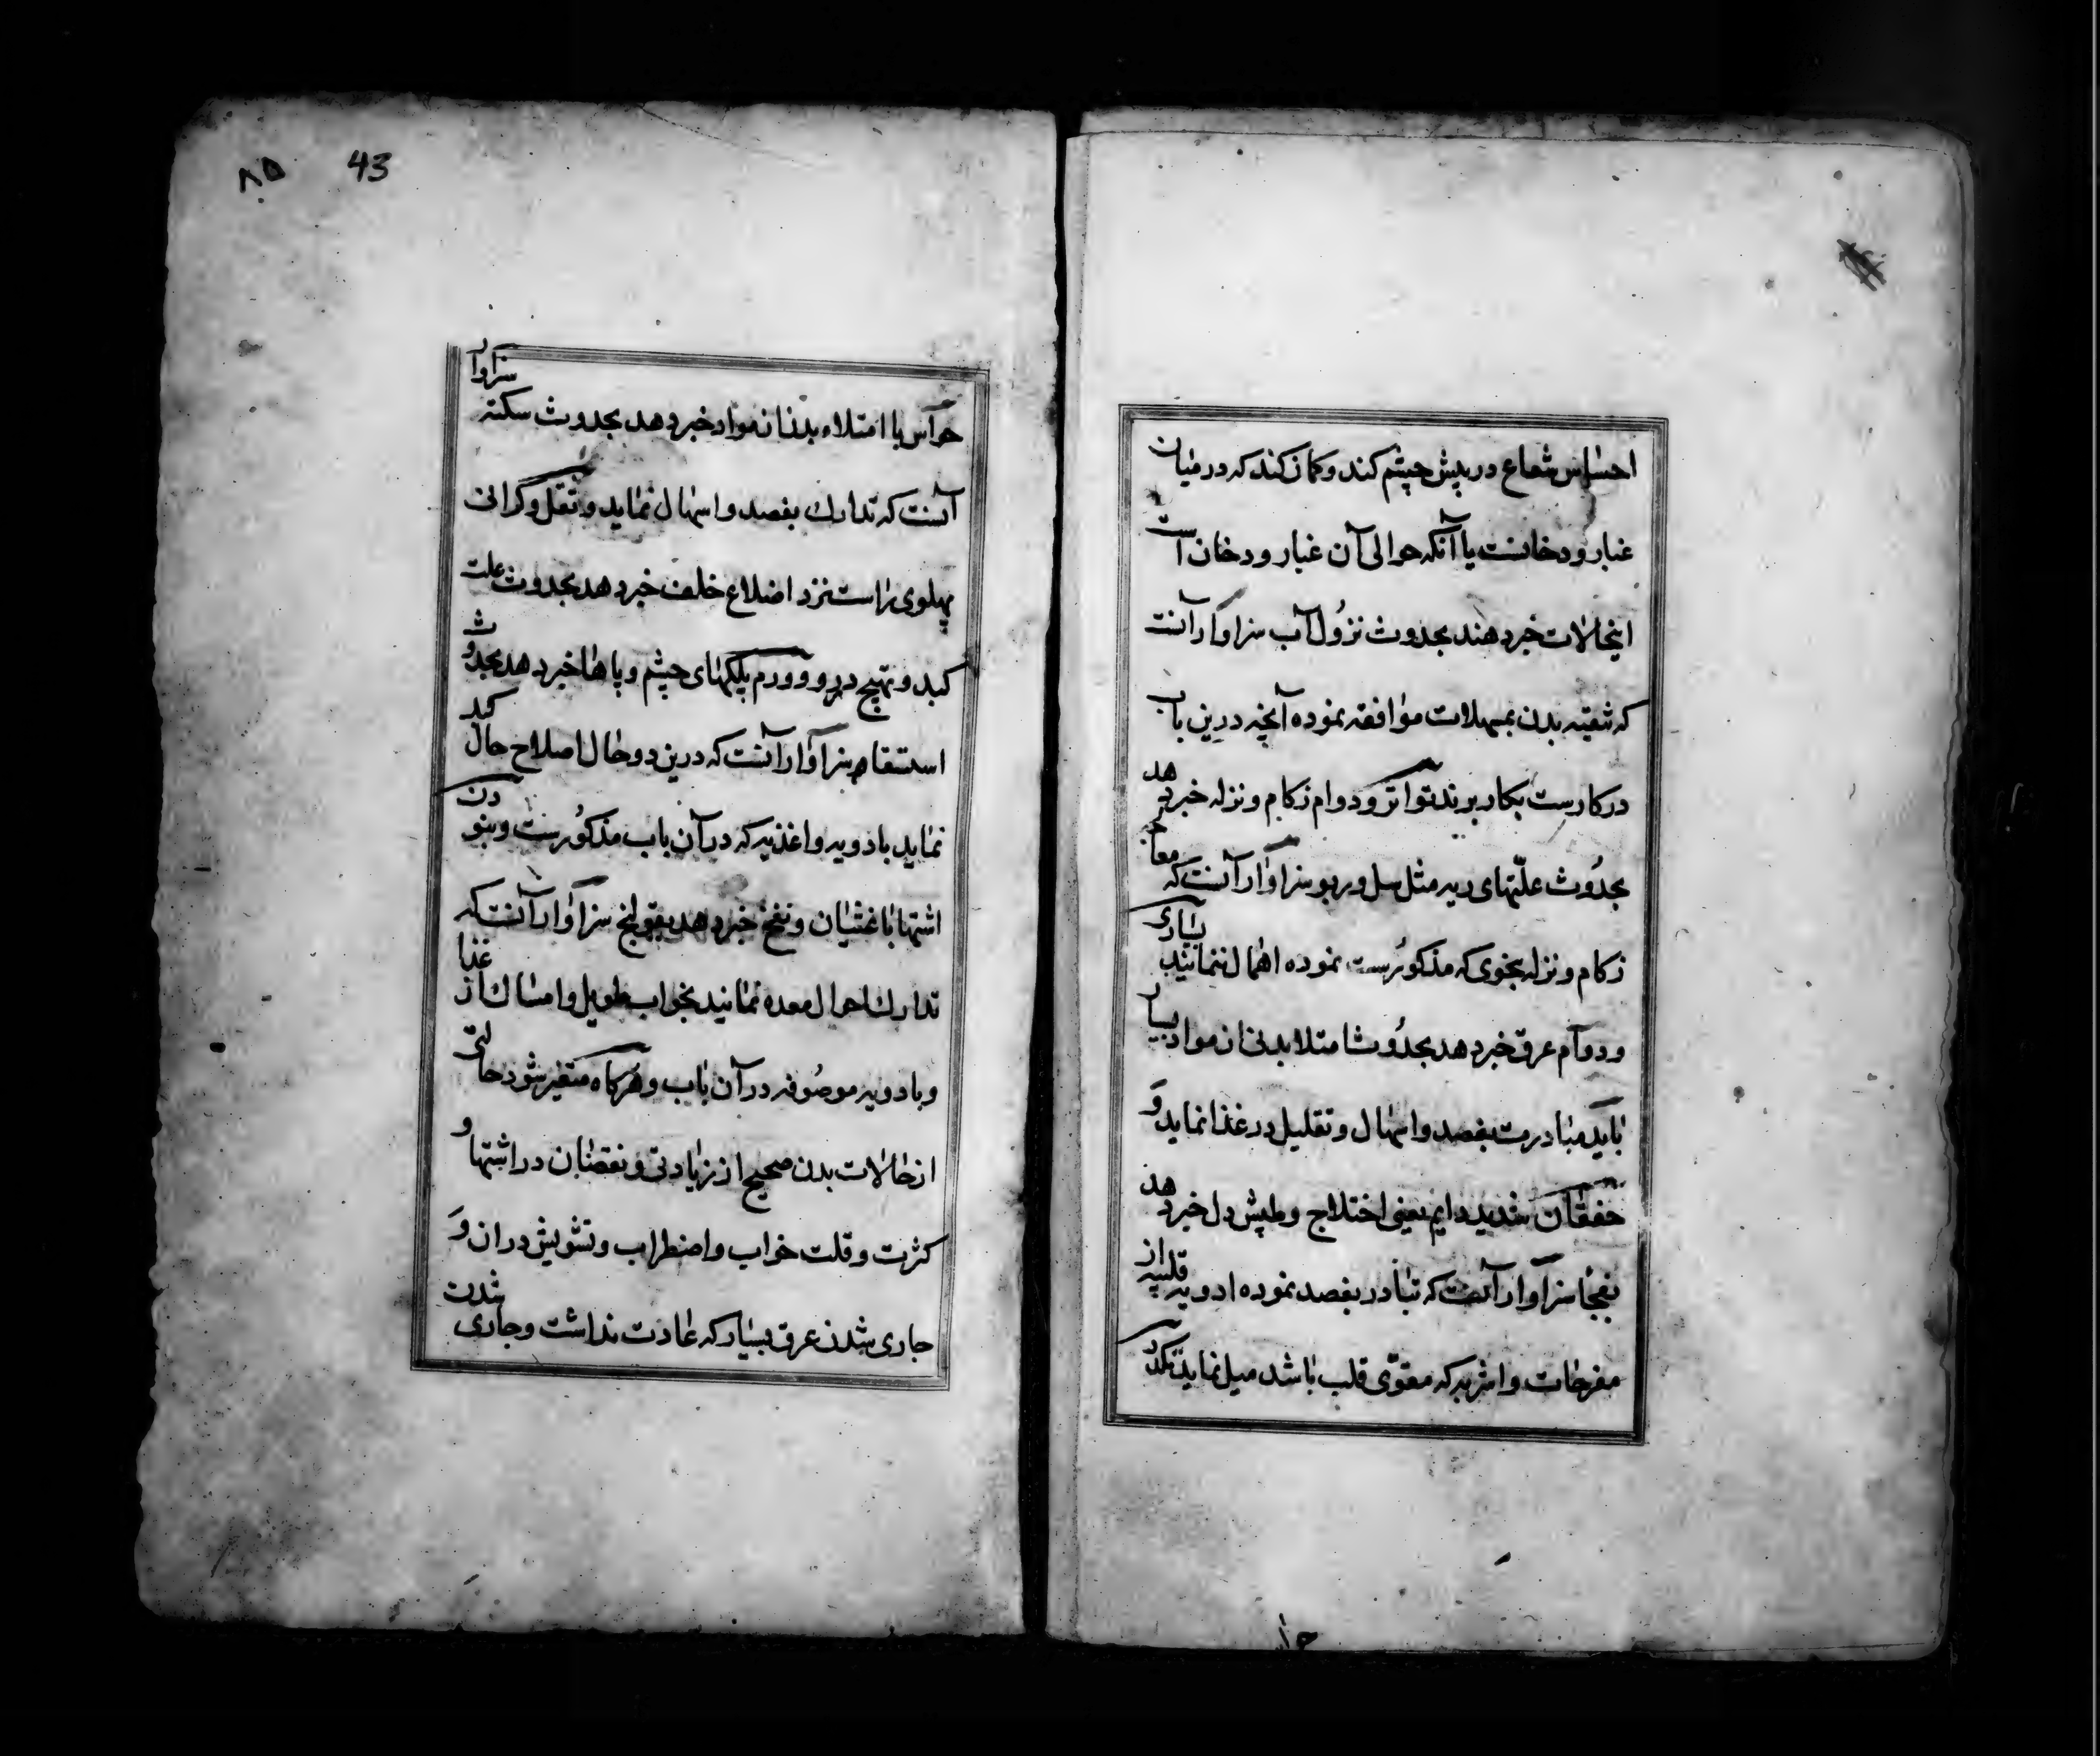 احساس شعاع در پیش چشم کند و کمان کند که در میان
غبار و دخانست یا آنکه حوالی آن غبار و دخان است
اینحالات خبر دهند بحدوث نزول آب سزاوار آنست
که تنقیه بدن بمسهلات موافقه نموده آنچه درین باب
در کارست بکار برند تواتر و دوام زکام و نزله خبر دهد
بحدوث علّتهای ریه مثل سل و ربو سزاوار آنست که معالجه
زکام و نزله بنحوی که مذکورست نموده اهمال ننمایند بسیاری
و دوام عرق خبر دهد بحدوث امتلا بدنی از مواد بسیار
باید مبادرت بفصد و اسهال و تقلیل در غذا نماید و
خفقان شدید دایم یعنی اختلاج و طپش دل خبر دهد
بفجا سزاوار آنست که تبادر بفصد نموده ادویه قلبیه از
مفرحات و اشربه که مقوّی قلب باشد میل نماید تکدر
۸۵ 43
حواس با امتلاء بدن از مواد خبر دهد بحدوث سکته سزاوار
آنست که تدارك بفصد و اسهال نماید و ثقل و گرانی
پهلوی راست نزد اضلاع خلف خبر دهد بحدوث علت
کبد و تهیج در رو و ورم پلکهای چشم و پاها خبر دهد بحدوث
استسقا سزاوار آنست که درین دو حال اصلاح حال کبد
نماید بادویه و اغذیه که در آن باب مذکورست و نبودن
اشتها با غثیان و نفخ خبر دهد بقولنج سزاوار آنست که
تدارك احوال معده نمایند بخواب طویل و امساك از غذا
و بادویه موصوفه در آن باب و هرکاه متغیر شود حالتی
از حالات بدن صحیح از زیادتی و نقصان در اشتها و
کثرت و قلت خواب و اضطراب و تشویش در ان و
جاری شدن عرق بسیار که عادت نداشت و جاری شدن